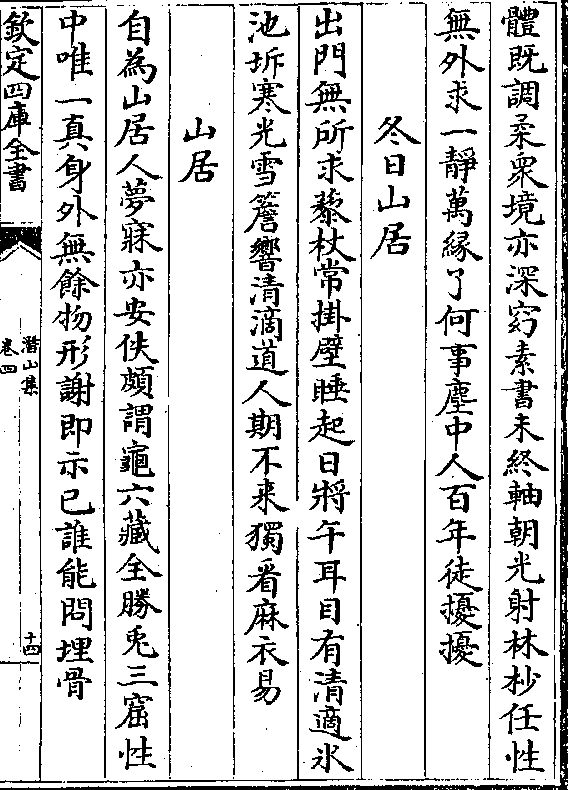 體既調柔衆境亦深窈素書未終軸朝光射林杪任性
無外求一靜萬縁了何事塵中人百年徒擾擾
冬日山居
出門無所求藜杖常掛壁睡起日將午耳目有清適氷
池坼寒光雪簷響清滴道人期不来獨看麻衣易
山居
自為山居人夢寐亦安佚頗謂龜六藏全勝兎三窟性
中唯一真身外無餘物形謝即示已誰能問埋骨
欽定四庫全書
潛山集
卷四
十四